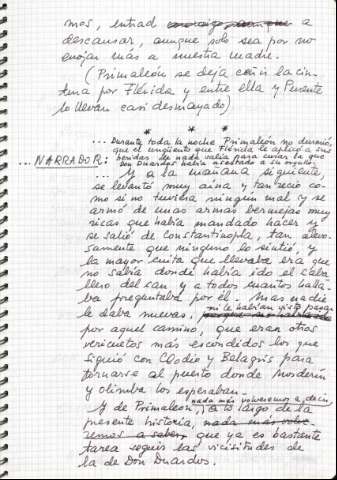 mos, entrad a
descansar, aunque solo sea por no
enojar más a nuestra madre.
(Primaleón se deja ceñir la cin-
tura por Flérida y entre ella y
lo llevan casi desmayado)
* * *
... Durante toda la noche Primaleón no durmió,
que el ungüento que Flérida le aplicó a sus
heridas de nada valía para curar la que
Don Duardos había asestado a su orgullo.
... NARRADOR:
... Y a la mañana siguiente,
se levantó muy aína y tan recio co-
mo si no tuviera ningún mal y se
armó de unas armas bermejas muy
ricas que había mandado hacer y
se salió de Constantinopla, tan
samente que ninguno lo sintió, y
la mayor cuita que llevaba era que
no sabía donde había ido el caba-
llero del can y a todos cuantos halla-
ba preguntaba por él. Mas nadie
le daba nuevas, ni le habían visto pasar
por aquel camino, que eran otros
vericuetos más escondidos los que
siguió con Clodio y Belagriz para
tornarse al puerto donde
y Olimba los esperaban.
Y de Primaleón, nada más volveremos a decir,
a lo largo de la
presente historia, nada más volve-
remos a saber, que ya es bastante
tarea seguir las vicisitudes de
la de Don Duardos.